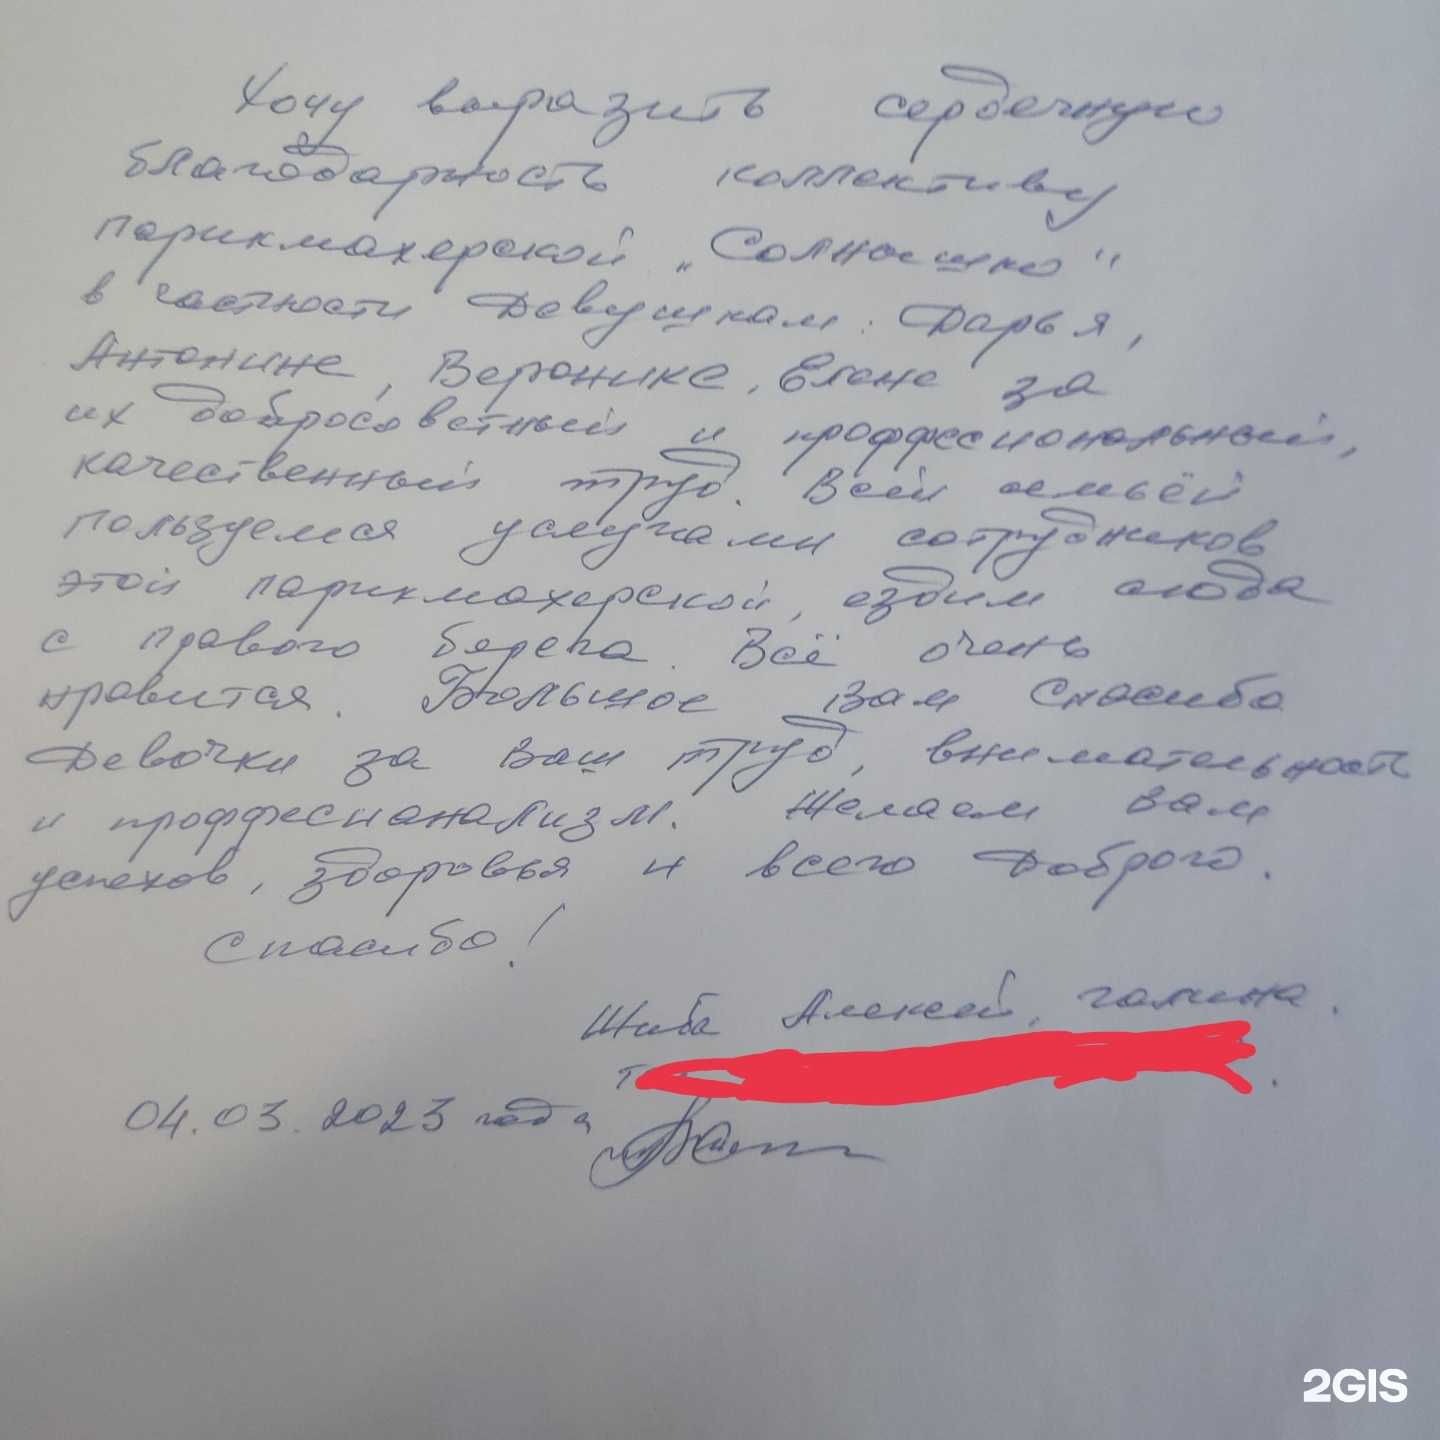 Хочу выразить сердечную
благодарность коллективу
парикмахерской „Солнышко"
в частности Девушкам: Дарья,
Антонине, Веронике, Елене за
их добросоветный и проффесиональный,
качественный труд. Всей семьёй
пользуемся услугами сотрудников
этой парикмахерской, ездим сюда
с правого берега. Всё очень
нравится. Большое Вам Спасибо
Девочки за Ваш труд, внимательность
и проффесианализм. Желаем Вам
успехов, здоровья и всего Доброго.
Спасибо!
Шиба Алексей, Галина.
т
04.03.2023 года
2GIS